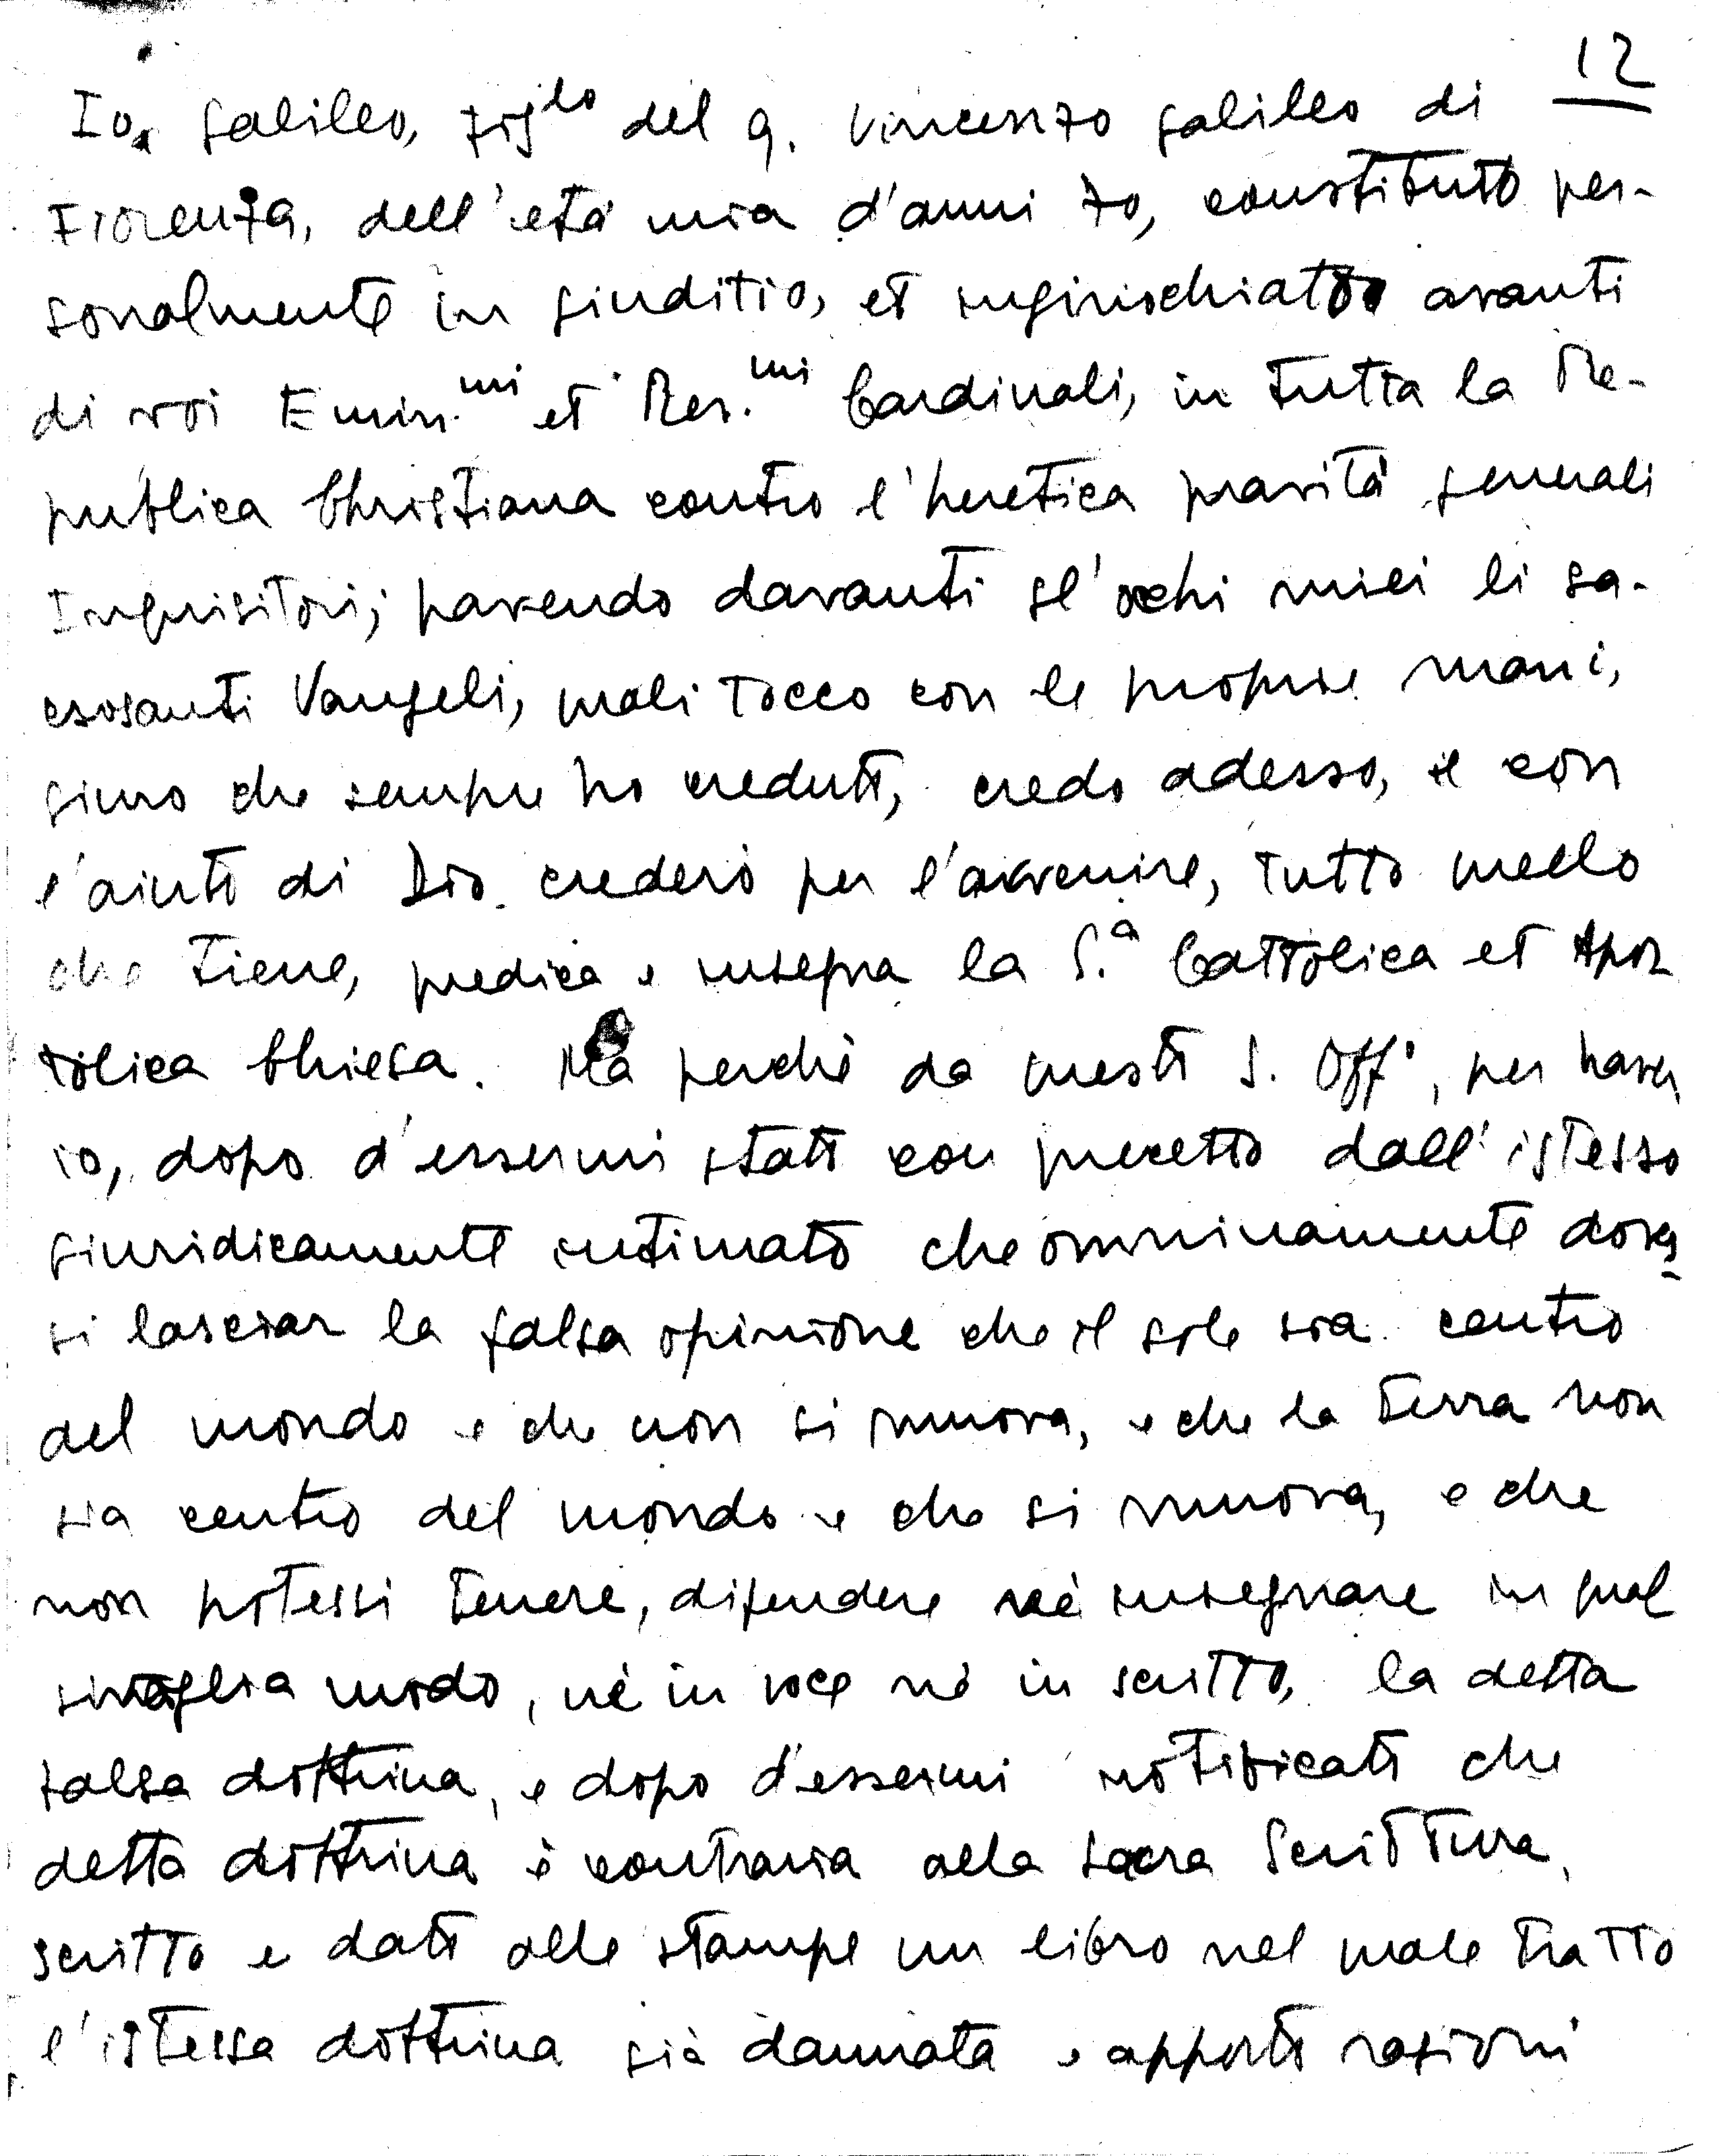 12
Io, Galileo, fig.lo del q. Vincenzo Galileo di
Fiorenza, dell'età mia d'anni 70, constituto per-
sonalmente in giuditio, et inginochiato avanti
di voi Emin.mi et Rev.mi Cardinali, in tutta la Re-
publica Christiana contro l'heretica pravità generali
Inquisitori; havendo davanti gl'ochi miei li sa-
crosanti Vangeli, quali tocco con le proprie mani,
giuro che sempre ho creduto, credo adesso, e con
l'aiuto di Dio crederò per l'avvenire, tutto quello
che tiene, predica e insegna la S.a Cattolica et Apos
tolica Chiesa. Ma perchè da questo S. Off°, per haver
io, dopo d'essermi stato con precetto dall'istesso
giuridicamente intimato che omninamente doves
si lasciar la falsa opinione che il sole sia centro
del mondo e che non si muova, e che la terra non
sia centro del mondo e che si muova, e che
non potessi tenere, difendere nè insegnare in qual
sivoglia modo, nè in voce nè in scritto, la detta
falsa dottrina, e dopo d'essermi notificato che
detta dottrina è contraria alla Sacra Scrittura,
scritto e dato alle stampe un libro nel quale tratto
l'istessa dottrina già dannata e apporto ragioni